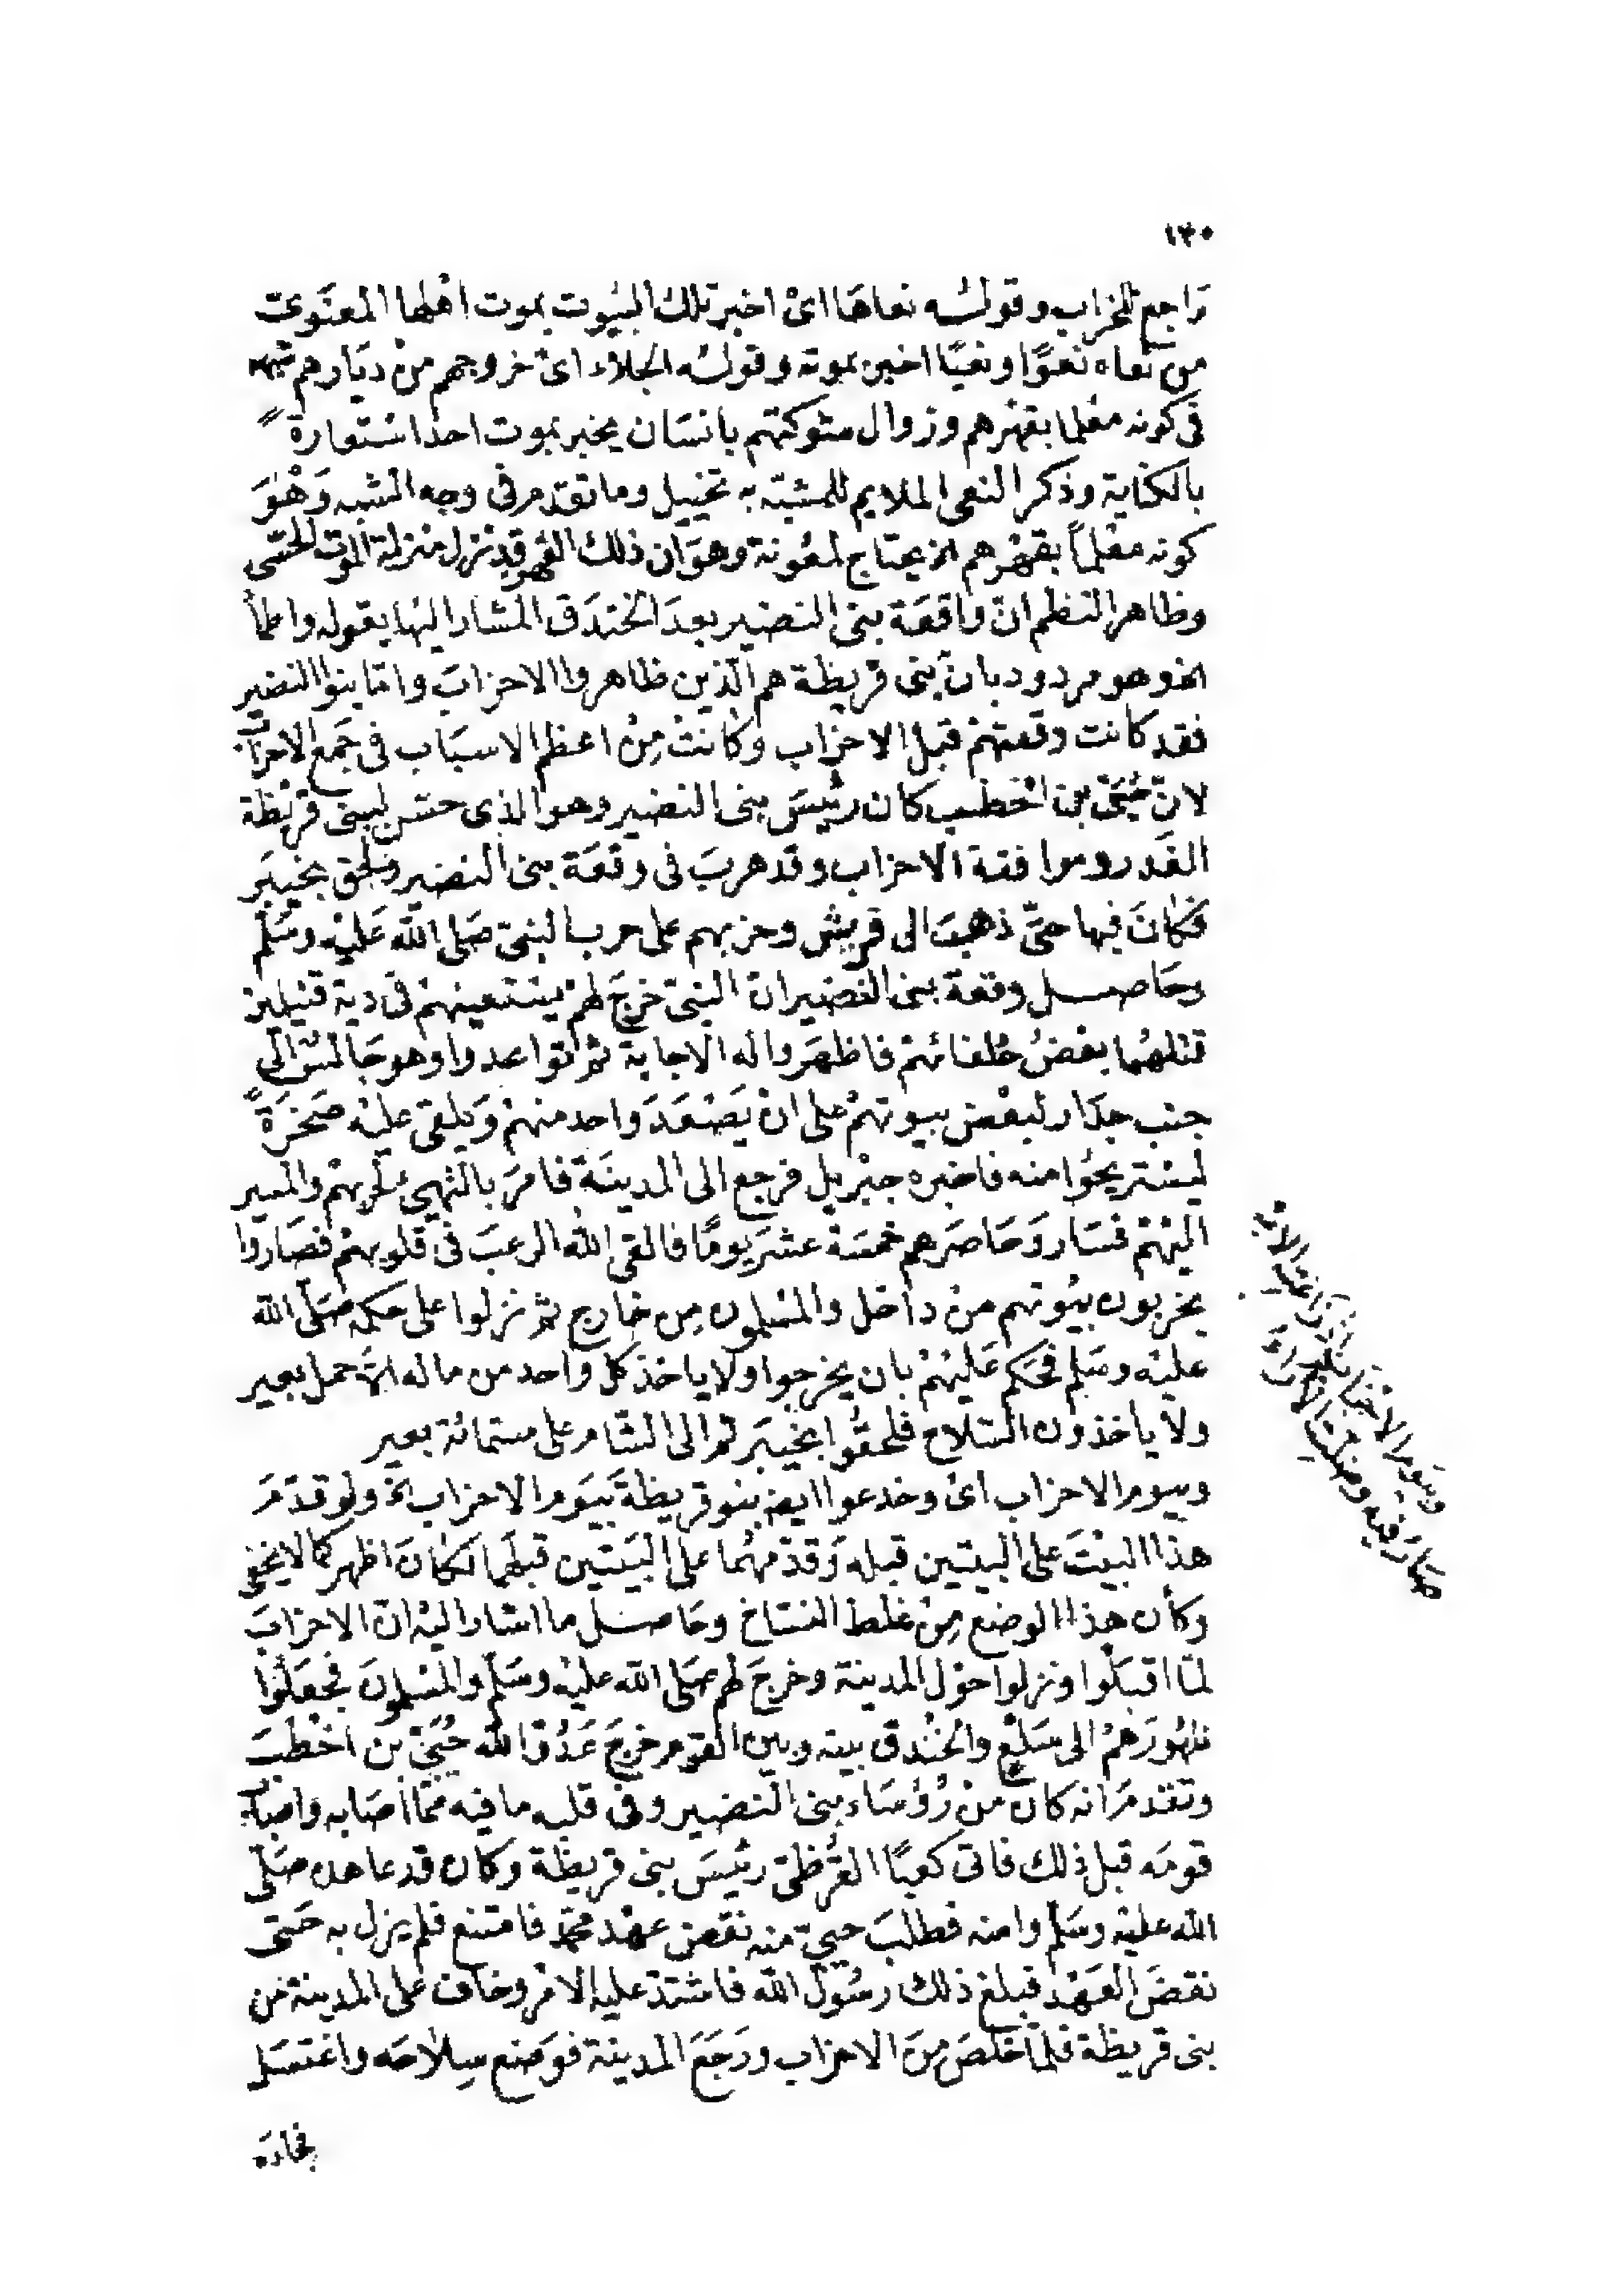 ١٣٠
راجع للخراب وقوله نعاها اى اخبر تلك البيوت بموت اهلها المعنوى
من نعاه نعوًا ونعيًا اخبر بموته وقوله الجلاء اى خروجهم من ديارهم شبهه
فى كونه معلما بقهرهم وزوال شوكتهم بانسان يخبر بموت احد استعارة
بالكناية وذكر النعى الملايم للمشبّه به تخييل وما تقدم فى وجه الشبه وهو
كونه معلماً بقهرهم الخ يحتاج لمعونة وهو ان ذلك القهر قد نزل منزلة الموت الحسّى
وظاهر النظم انّ واقعة بنى النضير بعد الخندق المشار اليها بقوله واطمأ
الخ وهو مردود بان بنى قريظة هم الذين ظاهروا الاحزاب واما بنوا النضير
فقد كانت وقعتهم قبل الاحزاب وكانت من اعظم الاسباب فى جمع الاحزاب
لانّ حُيَىّ بن اخطب كان رئيس بنى النضير وهو الذى حسّن لبنى قريظة
الغدر وموافقة الاحزاب وقد هرب فى وقعة بنى النضير ولحق بخيبر
فكان فيها حتّى ذهب الى قريش وحزبهم على حرب النبىّ صلى الله عليه وسلم
وحاصل وقعة بنى النضير ان النبىّ خرج لهم يستعينهم فى دية قتيلين
قتلهما بعض حلفائهم فاظهروا له الاجابة ثم تواعدوا وهو جالس الى
جنب جدار لبعض بيوتهم على ان يصعد واحد منهم ويلقى عليه صخرةً
ليستريحوا منه فاخبره جبريل فرجع الى المدينة فامر بالتهيى لحربهم والمسير
اليهم فسار وحاصرهم خمسة عشر يومًا فالقى الله الرعب فى قلوبهم فصاروا
يخربون بيوتهم من داخل والمسلمون من خارج ثم نزلوا على حكمه صلى الله
عليه وسلم فحكم عليهم بان يخرجوا ولا ياخذ كل واحد من ماله الا حمل بعير
ولا ياخذون السلاح فلحقوا بخيبر ثم الى الشام على ستمائة بعير
وبيوم الاحزاب اى وخدعوا ايضا بنو قريظة بيوم الاحزاب الخ ولو قدّم
هذا البيت على البيتين قبله وقدمهما على البيتين قبلهما لكان اظهر كما لا يخفى
وكأن هذا الوضع من غلط النساخ وحاصل ما اشار اليه ان الاحزاب
لما اقبلوا ونزلوا حول المدينة وخرج لهم صلى الله عليه وسلم والمسلمون فجعلوا
ظهورهم الى سلع والخندق بينه وبين القوم خرج عدوّ الله حُيَىّ بن اخطب
وتقدم انه كان من رؤساء بنى النضير وفى قلبه ما فيه مما اصابه واصاب
قومه قبل ذلك فاتى كعبًا القرظى رئيس بنى قريظة وكان قد عاهده صلى
الله عليه وسلم وامنه فطلب حيىّ منه نقض عهد محمد فامتنع فلم يزل به حتى
نقض العهد فبلغ ذلك رسول الله فاشتدّ عليه الامر وخاف على المدينة من
بنى قريظة فلما خلص من الاحزاب ورجع المدينة فوضع سلاحه واغتسل
فجاءه
وبيوم الاحزاب اذ زاغت الابصار فيه وضلت الآراء